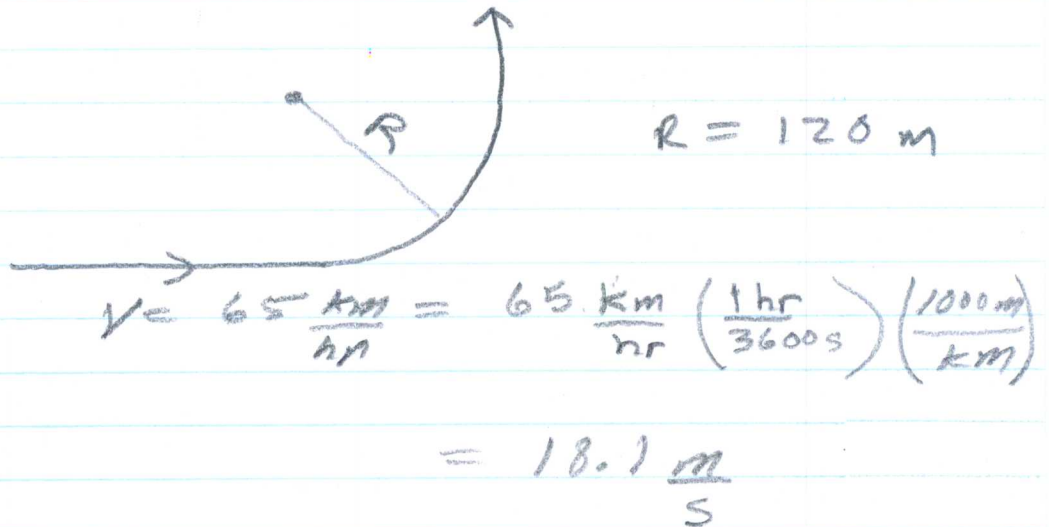 R
R = 120 m
V = 65 km/hr = 65 km/hr (1 hr/3600 s) (1000 m/km)
= 18.1 m/s